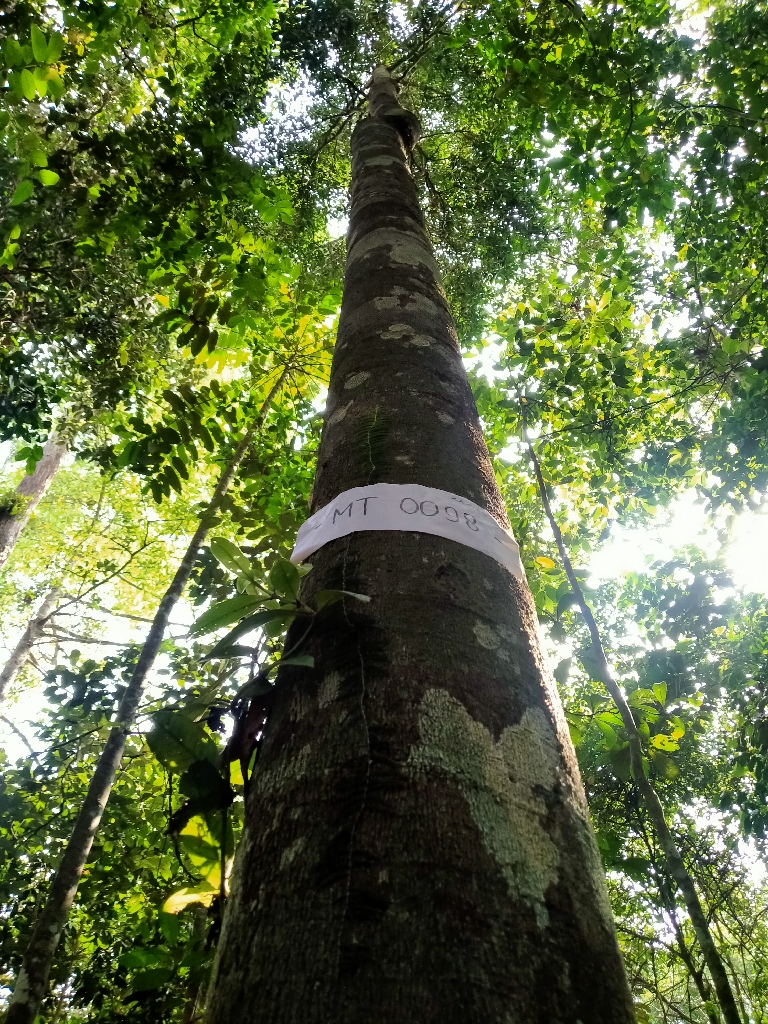 MT 0098